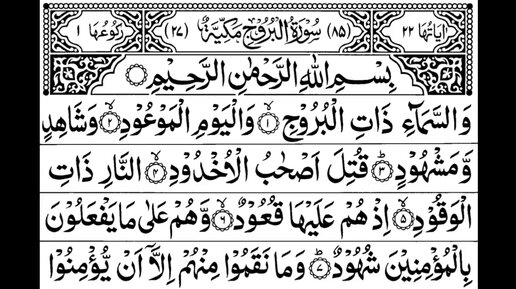 اٰيَاتُهَا ٢٢ (٨٥) سُوْرَةُ الْبُرُوْجِ مَكِّيَّةٌ (٢٧) رُكُوْعُهَا ١
بِسْمِ اللهِ الرَّحْمٰنِ الرَّحِيْمِ
وَالسَّمَآءِ ذَاتِ الْبُرُوْجِ ۙ﴿١﴾ وَالْيَوْمِ الْمَوْعُوْدِ ۙ﴿٢﴾ وَشَاهِدٍ
وَّمَشْهُوْدٍ ؕ﴿٣﴾ قُتِلَ اَصْحٰبُ الْاُخْدُوْدِ ۙ﴿٤﴾ النَّارِ ذَاتِ
الْوَقُوْدِ ۙ﴿٥﴾ اِذْ هُمْ عَلَيْهَا قُعُوْدٌ ۙ﴿٦﴾ وَّهُمْ عَلٰى مَا يَفْعَلُوْنَ
بِالْمُؤْمِنِيْنَ شُهُوْدٌ ؕ﴿٧﴾ وَمَا نَقَمُوْا مِنْهُمْ اِلَّاۤ اَنْ يُّؤْمِنُوْا